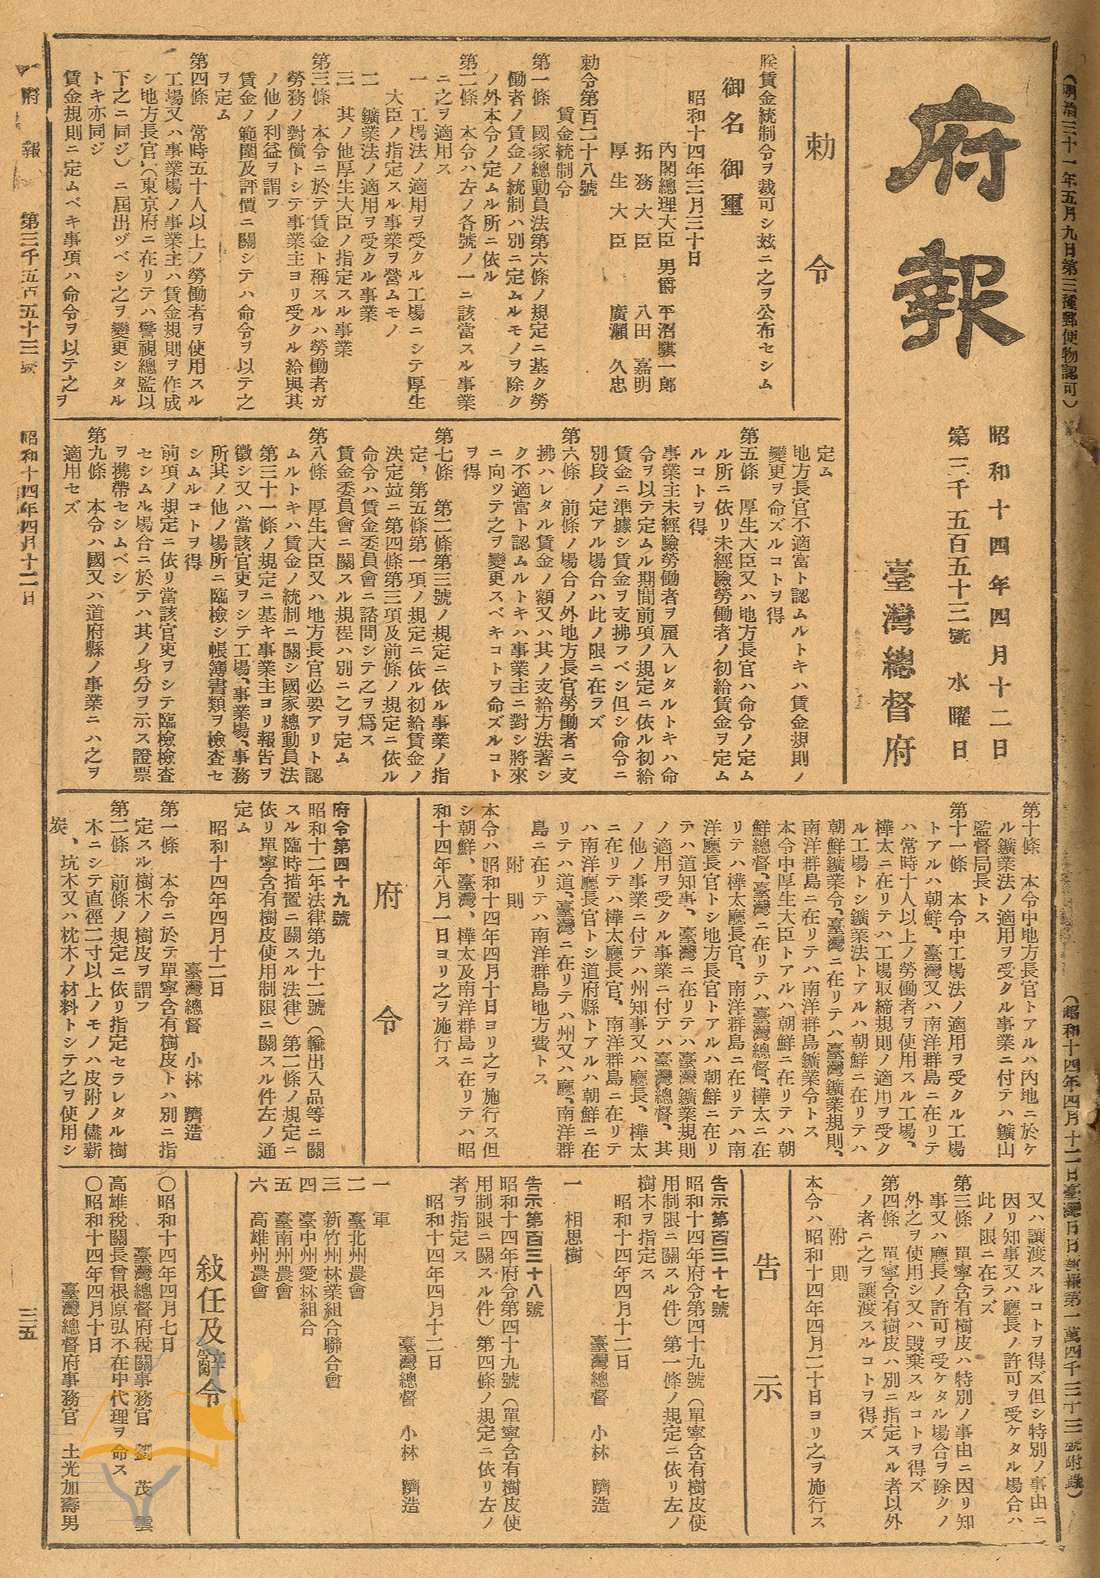 府報
昭和十四年四月十二日
第三千五百五十三號 水曜日
臺灣總督府
(明治三十一年五月九日第三種郵便物認可)
(昭和十四年四月十二日臺灣日日新報第一萬四千三百三十三號附錄)
府報 第三千五百五十三號 昭和十四年四月十二日 三五
勅令
朕賃金統制令ヲ裁可シ玆ニ之ヲ公布セシム
御名御璽
昭和十四年三月三十日
內閣總理大臣 男爵 平沼騏一郎
拓務大臣 八田 嘉明
厚生大臣 廣瀨 久忠
勅令第百二十八號
賃金統制令
第一條 國家總動員法第六條ノ規定ニ基ク勞
働者ノ賃金ノ統制ハ別ニ定ムルモノヲ除ク
ノ外本令ノ定ムル所ニ依ル
第二條 本令ハ左ノ各號ノ一ニ該當スル事業
ニ之ヲ適用ス
一 工場法ノ適用ヲ受クル工場ニシテ厚生
大臣ノ指定スル事業ヲ營ムモノ
二 鑛業法ノ適用ヲ受クル事業
三 其ノ他厚生大臣ノ指定スル事業
第三條 本令ニ於テ賃金ト稱スルハ勞働者ガ
勞務ノ對償トシテ事業主ヨリ受クル給與其
ノ他ノ利益ヲ謂フ
賃金ノ範圍及評價ニ關シテハ命令ヲ以テ之
ヲ定ム
第四條 常時五十人以上ノ勞働者ヲ使用スル
工場又ハ事業場ノ事業主ハ賃金規則ヲ作成
シ地方長官(東京府ニ在リテハ警視總監以
下之ニ同ジ)ニ屆出ヅベシ之ヲ變更シタル
トキ亦同ジ
賃金規則ニ定ムベキ事項ハ命令ヲ以テ之ヲ
定ム
地方長官不適當ト認ムルトキハ賃金規則ノ
變更ヲ命ズルコトヲ得
第五條 厚生大臣又ハ地方長官ハ命令ノ定ム
ル所ニ依リ未經驗勞働者ノ初給賃金ヲ定ム
ルコトヲ得
事業主未經驗勞働者ヲ雇入レタルトキハ命
令ヲ以テ定ムル期間前項ノ規定ニ依ル初給
賃金ニ準據シ賃金ヲ支拂フベシ但シ命令ニ
別段ノ定アル場合ハ此ノ限ニ在ラズ
第六條 前條ノ場合ノ外地方長官勞働者ニ支
拂ハレタル賃金ノ額又ハ其ノ支給方法著シ
ク不適當ト認ムルトキハ事業主ニ對シ將來
ニ向ツテ之ヲ變更スベキコトヲ命ズルコト
ヲ得
第七條 第二條第三號ノ規定ニ依ル事業ノ指
定、第五條第一項ノ規定ニ依ル初給賃金ノ
決定竝ニ第四條第三項及前條ノ規定ニ依ル
命令ハ賃金委員會ニ諮問シテ之ヲ爲ス
賃金委員會ニ關スル規程ハ別ニ之ヲ定ム
第八條 厚生大臣又ハ地方長官必要アリト認
ムルトキハ賃金ノ統制ニ關シ國家總動員法
第三十一條ノ規定ニ基キ事業主ヨリ報告ヲ
徵シ又ハ當該官吏ヲシテ工場、事業場、事務
所其ノ他ノ場所ニ臨檢シ帳簿書類ヲ檢查セ
シムルコトヲ得
前項ノ規定ニ依リ當該官吏ヲシテ臨檢檢查
セシムル場合ニ於テハ其ノ身分ヲ示ス證票
ヲ携帶セシムベシ
第九條 本令ハ國又ハ道府縣ノ事業ニハ之ヲ
適用セズ
第十條 本令中地方長官トアルハ內地ニ於ケ
ル鑛業法ノ適用ヲ受クル事業ニ付テハ鑛山
監督局長トス
第十一條 本令中工場法ノ適用ヲ受クル工場
トアルハ朝鮮、臺灣又ハ南洋群島ニ在リテ
ハ常時十人以上ノ勞働者ヲ使用スル工場、
樺太ニ在リテハ工場取締規則ノ適用ヲ受ク
ル工場トシ鑛業法トアルハ朝鮮ニ在リテハ
朝鮮鑛業令、臺灣ニ在リテハ臺灣鑛業規則、
南洋群島ニ在リテハ南洋群島鑛業令トス
本令中厚生大臣トアルハ朝鮮ニ在リテハ朝
鮮總督、臺灣ニ在リテハ臺灣總督、樺太ニ在
リテハ樺太廳長官、南洋群島ニ在リテハ南
洋廳長官トシ地方長官トアルハ朝鮮ニ在リ
テハ道知事、臺灣ニ在リテハ臺灣鑛業規則
ノ適用ヲ受クル事業ニ付テハ臺灣總督、其
ノ他ノ事業ニ付テハ州知事又ハ廳長、樺太
ニ在リテハ樺太廳長官、南洋群島ニ在リテ
ハ南洋廳長官トシ道府縣トアルハ朝鮮ニ在
リテハ道、臺灣ニ在リテハ州又ハ廳、南洋群
島ニ在リテハ南洋群島地方費トス
附則
本令ハ昭和十四年四月十日ヨリ之ヲ施行ス但
シ朝鮮、臺灣、樺太及南洋群島ニ在リテハ昭
和十四年八月一日ヨリ之ヲ施行ス
府令
府令第四十九號
昭和十二年法律第九十二號(輸出入品等ニ關
スル臨時措置ニ關スル法律)第二條ノ規定ニ
依リ單寧含有樹皮使用制限ニ關スル件左ノ通
定ム
昭和十四年四月十二日
臺灣總督 小林 躋造
第一條 本令ニ於テ單寧含有樹皮トハ別ニ指
定スル樹木ノ樹皮ヲ謂フ
第二條 前條ノ規定ニ依リ指定セラレタル樹
木ニシテ直徑二寸以上ノモノハ皮附ノ儘薪
炭、坑木又ハ枕木ノ材料トシテ之ヲ使用シ
又ハ讓渡スルコトヲ得ズ但シ特別ノ事由ニ
因リ知事又ハ廳長ノ許可ヲ受ケタル場合ハ
此ノ限ニ在ラズ
第三條 單寧含有樹皮ハ特別ノ事由ニ因リ知
事又ハ廳長ノ許可ヲ受ケタル場合ヲ除クノ
外之ヲ使用シ又ハ毀棄スルコトヲ得ズ
第四條 單寧含有樹皮ハ別ニ指定スル者以外
ノ者ニ之ヲ讓渡スルコトヲ得ズ
附則
本令ハ昭和十四年四月二十日ヨリ之ヲ施行ス
告示
告示第百三十七號
昭和十四年府令第四十九號(單寧含有樹皮使
用制限ニ關スル件)第一條ノ規定ニ依リ左ノ
樹木ヲ指定ス
昭和十四年四月十二日
臺灣總督 小林 躋造
一 相思樹
告示第百三十八號
昭和十四年府令第四十九號(單寧含有樹皮使
用制限ニ關スル件)第四條ノ規定ニ依リ左ノ
者ヲ指定ス
昭和十四年四月十二日
臺灣總督 小林 躋造
一 軍
二 臺北州農會
三 新竹州林業組合聯合會
四 臺中州愛林組合
五 臺南州農會
六 高雄州農會
敍任及辭令
〇昭和十四年四月七日
臺灣總督府稅關事務官 劉 茂雲
高雄稅關長曾根原弘不在中代理ヲ命ス
〇昭和十四年四月十日
臺灣總督府事務官 土光加壽男